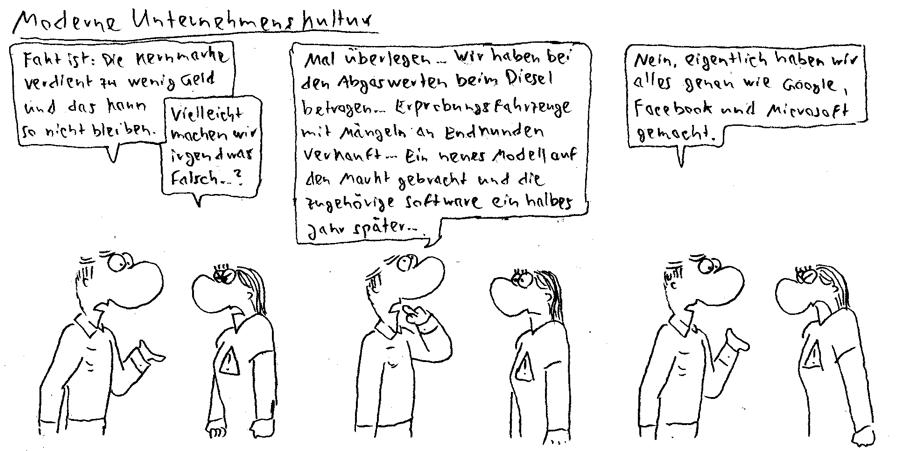 Moderne Unternehmenskultur
Fakt ist: Die Kernmarke
verdient zu wenig Geld
und das kann
so nicht bleiben.
Vielleicht
machen wir
irgendwas
falsch...?
Mal überlegen... Wir haben bei
den Abgaswerten beim Diesel
betrogen... Erprobungsfahrzeuge
mit Mängeln an Endkunden
verkauft... Ein neues Modell auf
den Markt gebracht und die
zugehörige Software ein halbes
Jahr später...
Nein, eigentlich haben wir
alles genau wie Google,
Facebook und Microsoft
gemacht.